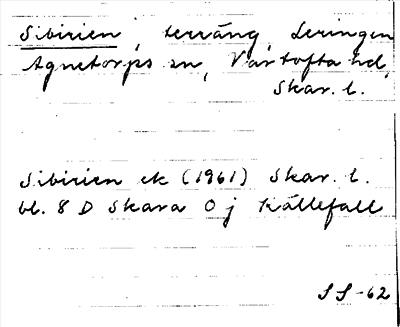 Sibirien, terräng, Leringen
Agnetorps sn, Vartofta hd,
Skar. l.
Sibirien ek (1961) Skar. l.
bl. 8 D Skara 0 j Källefall
SS-62